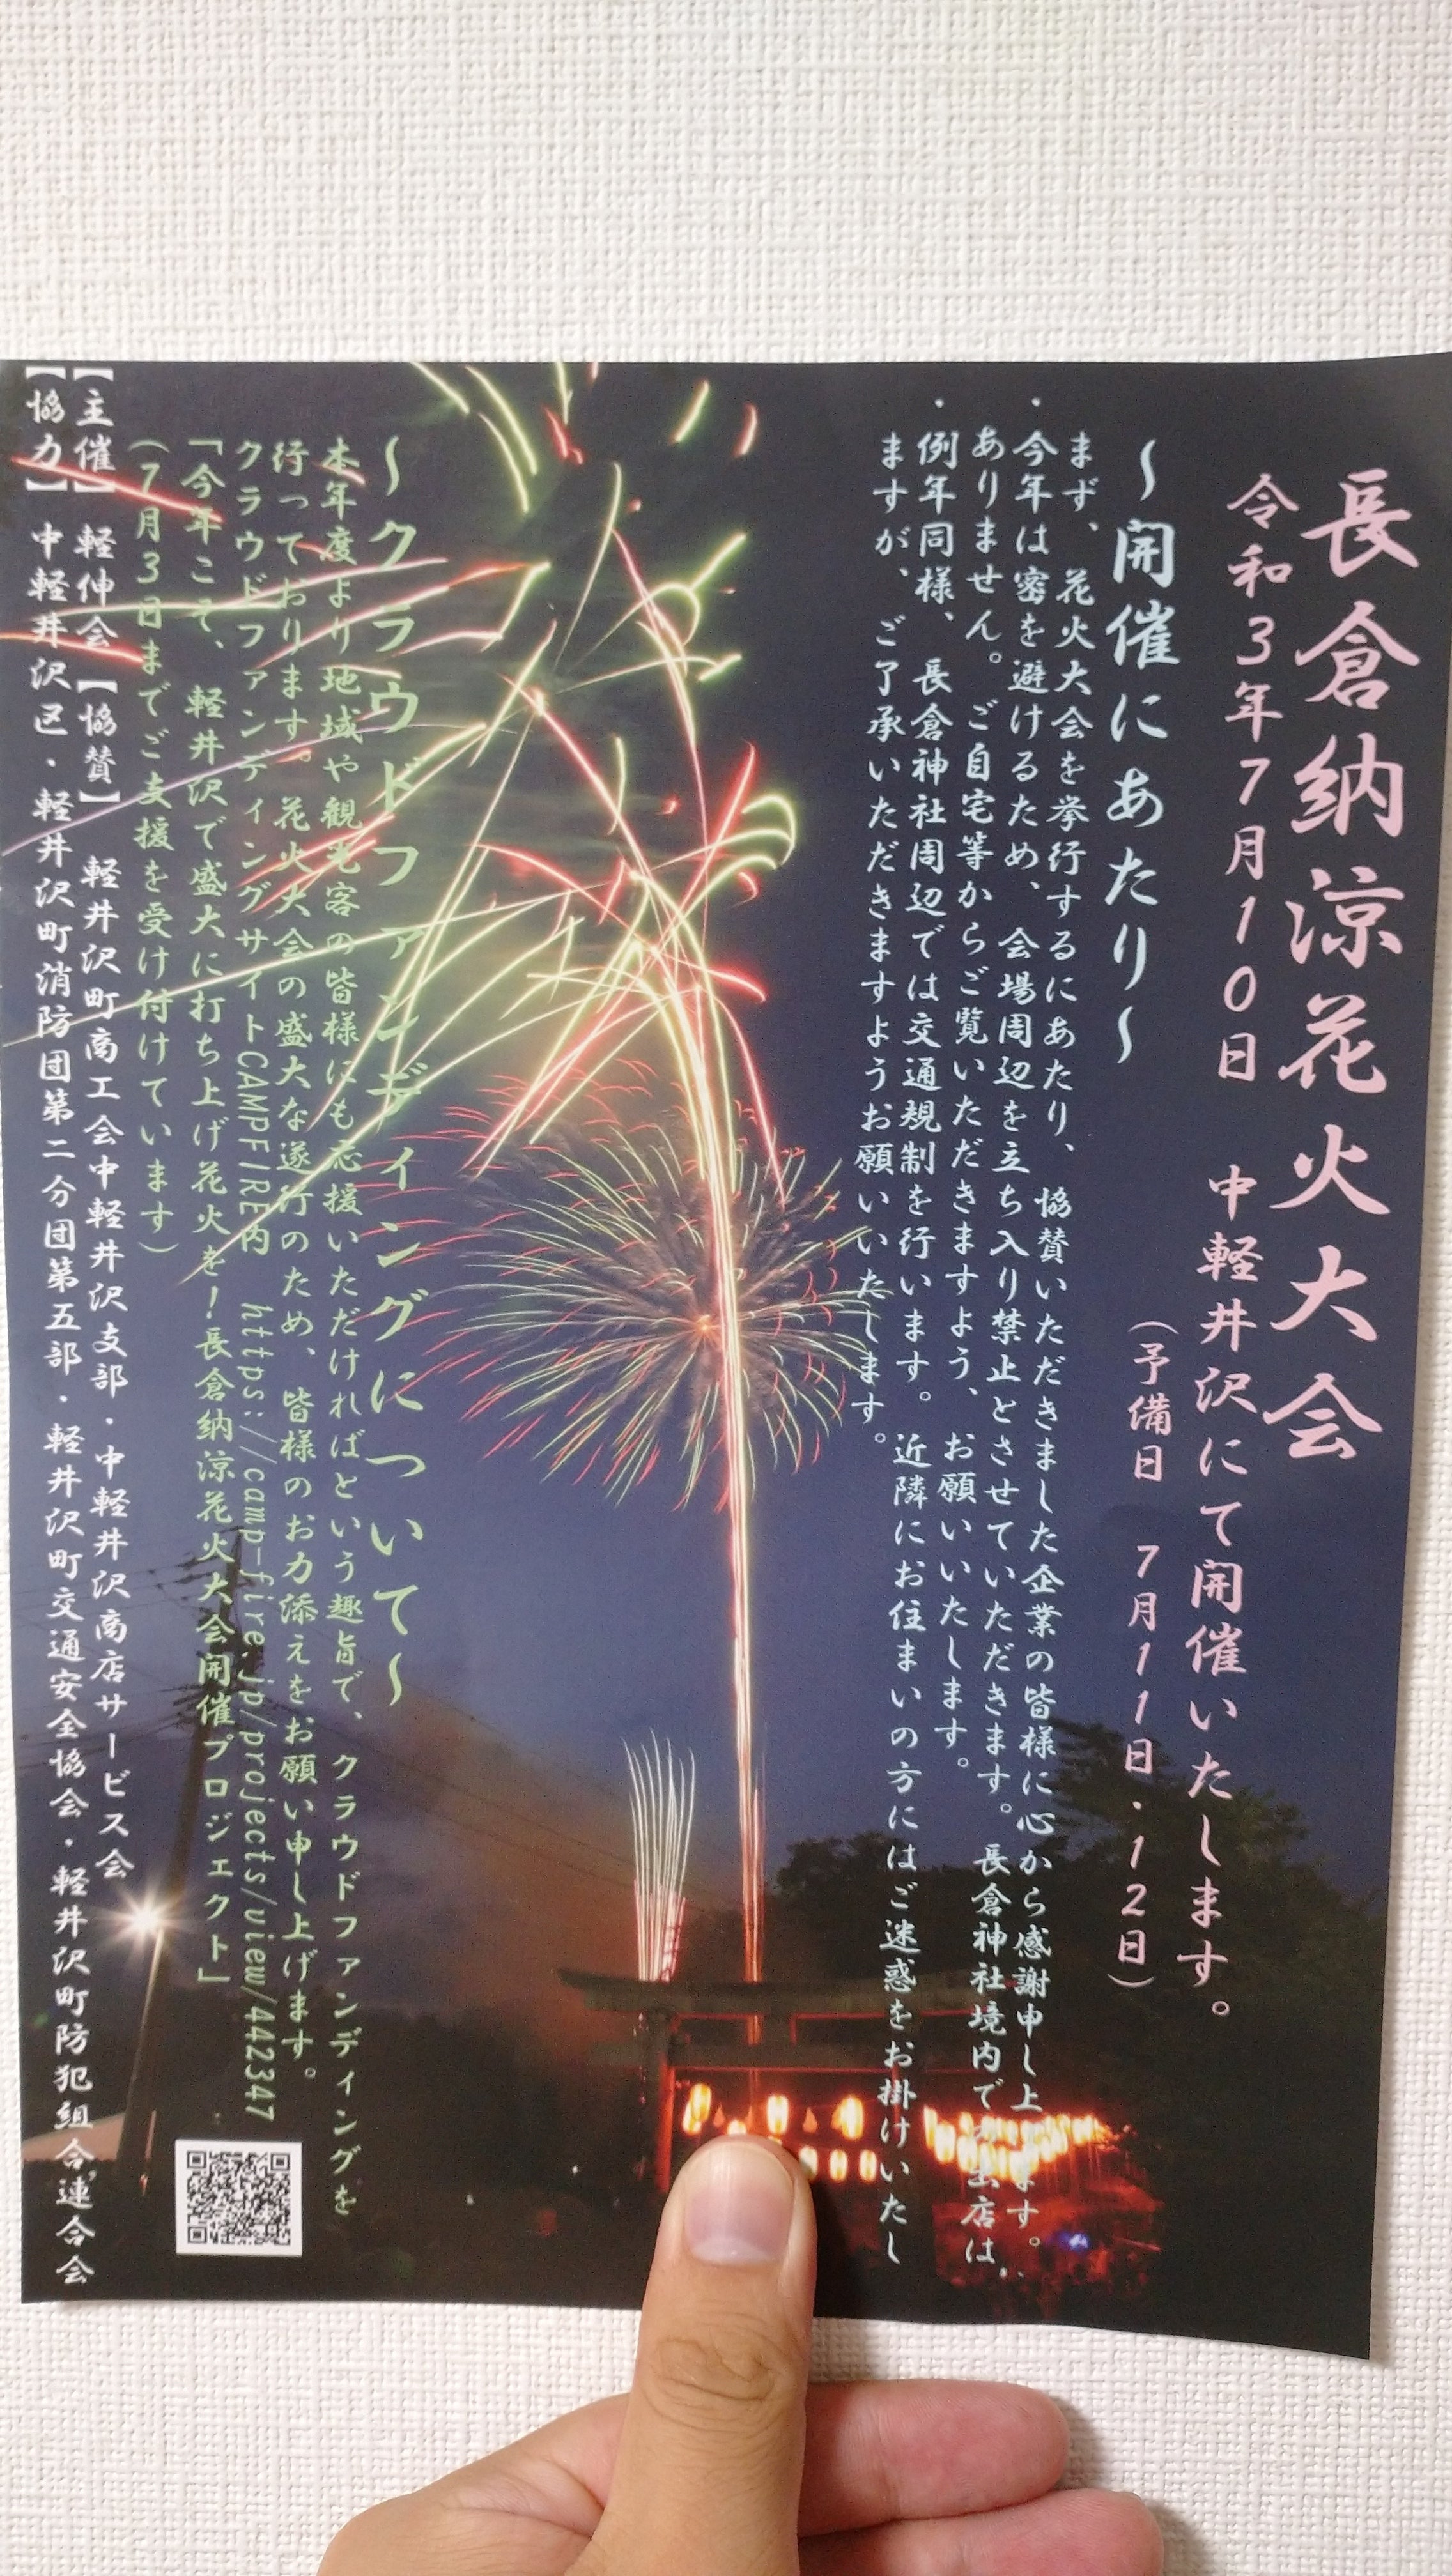 長倉納涼花火大会
令和3年7月10日 中軽井沢にて開催いたします。
(予備日 7月11日・12日)
～開催にあたり～
まず、花火大会を挙行するにあたり、協賛いただきました企業の皆様に心から感謝申し上げます。
・今年は密を避けるため、会場周辺を立ち入り禁止とさせていただきます。長倉神社境内での出店は
ありません。ご自宅等からご覧いただきますよう、お願いいたします。
・例年同様、長倉神社周辺では交通規制を行います。近隣にお住まいの方にはご迷惑をお掛けいたし
ますが、ご了承いただきますようお願いいたします。
～クラウドファンディングについて～
本年度より地域や観光客の皆様にも応援いただければという趣旨で、クラウドファンディングを
行っております。花火大会の盛大な遂行のため、皆様のお力添えをお願い申し上げます。
クラウドファンディングサイトCAMPFIRE内 https://camp-fire.jp/projects/view/442347
「今年こそ、軽井沢で盛大に打ち上げ花火を！長倉納涼花火大会開催プロジェクト」
(7月3日までご支援を受け付けています)
【主催】軽伸会【協賛】軽井沢町商工会中軽井沢支部・中軽井沢商店サービス会
【協力】中軽井沢区・軽井沢町消防団第二分団第五部・軽井沢町交通安全協会・軽井沢町防犯組合連合会